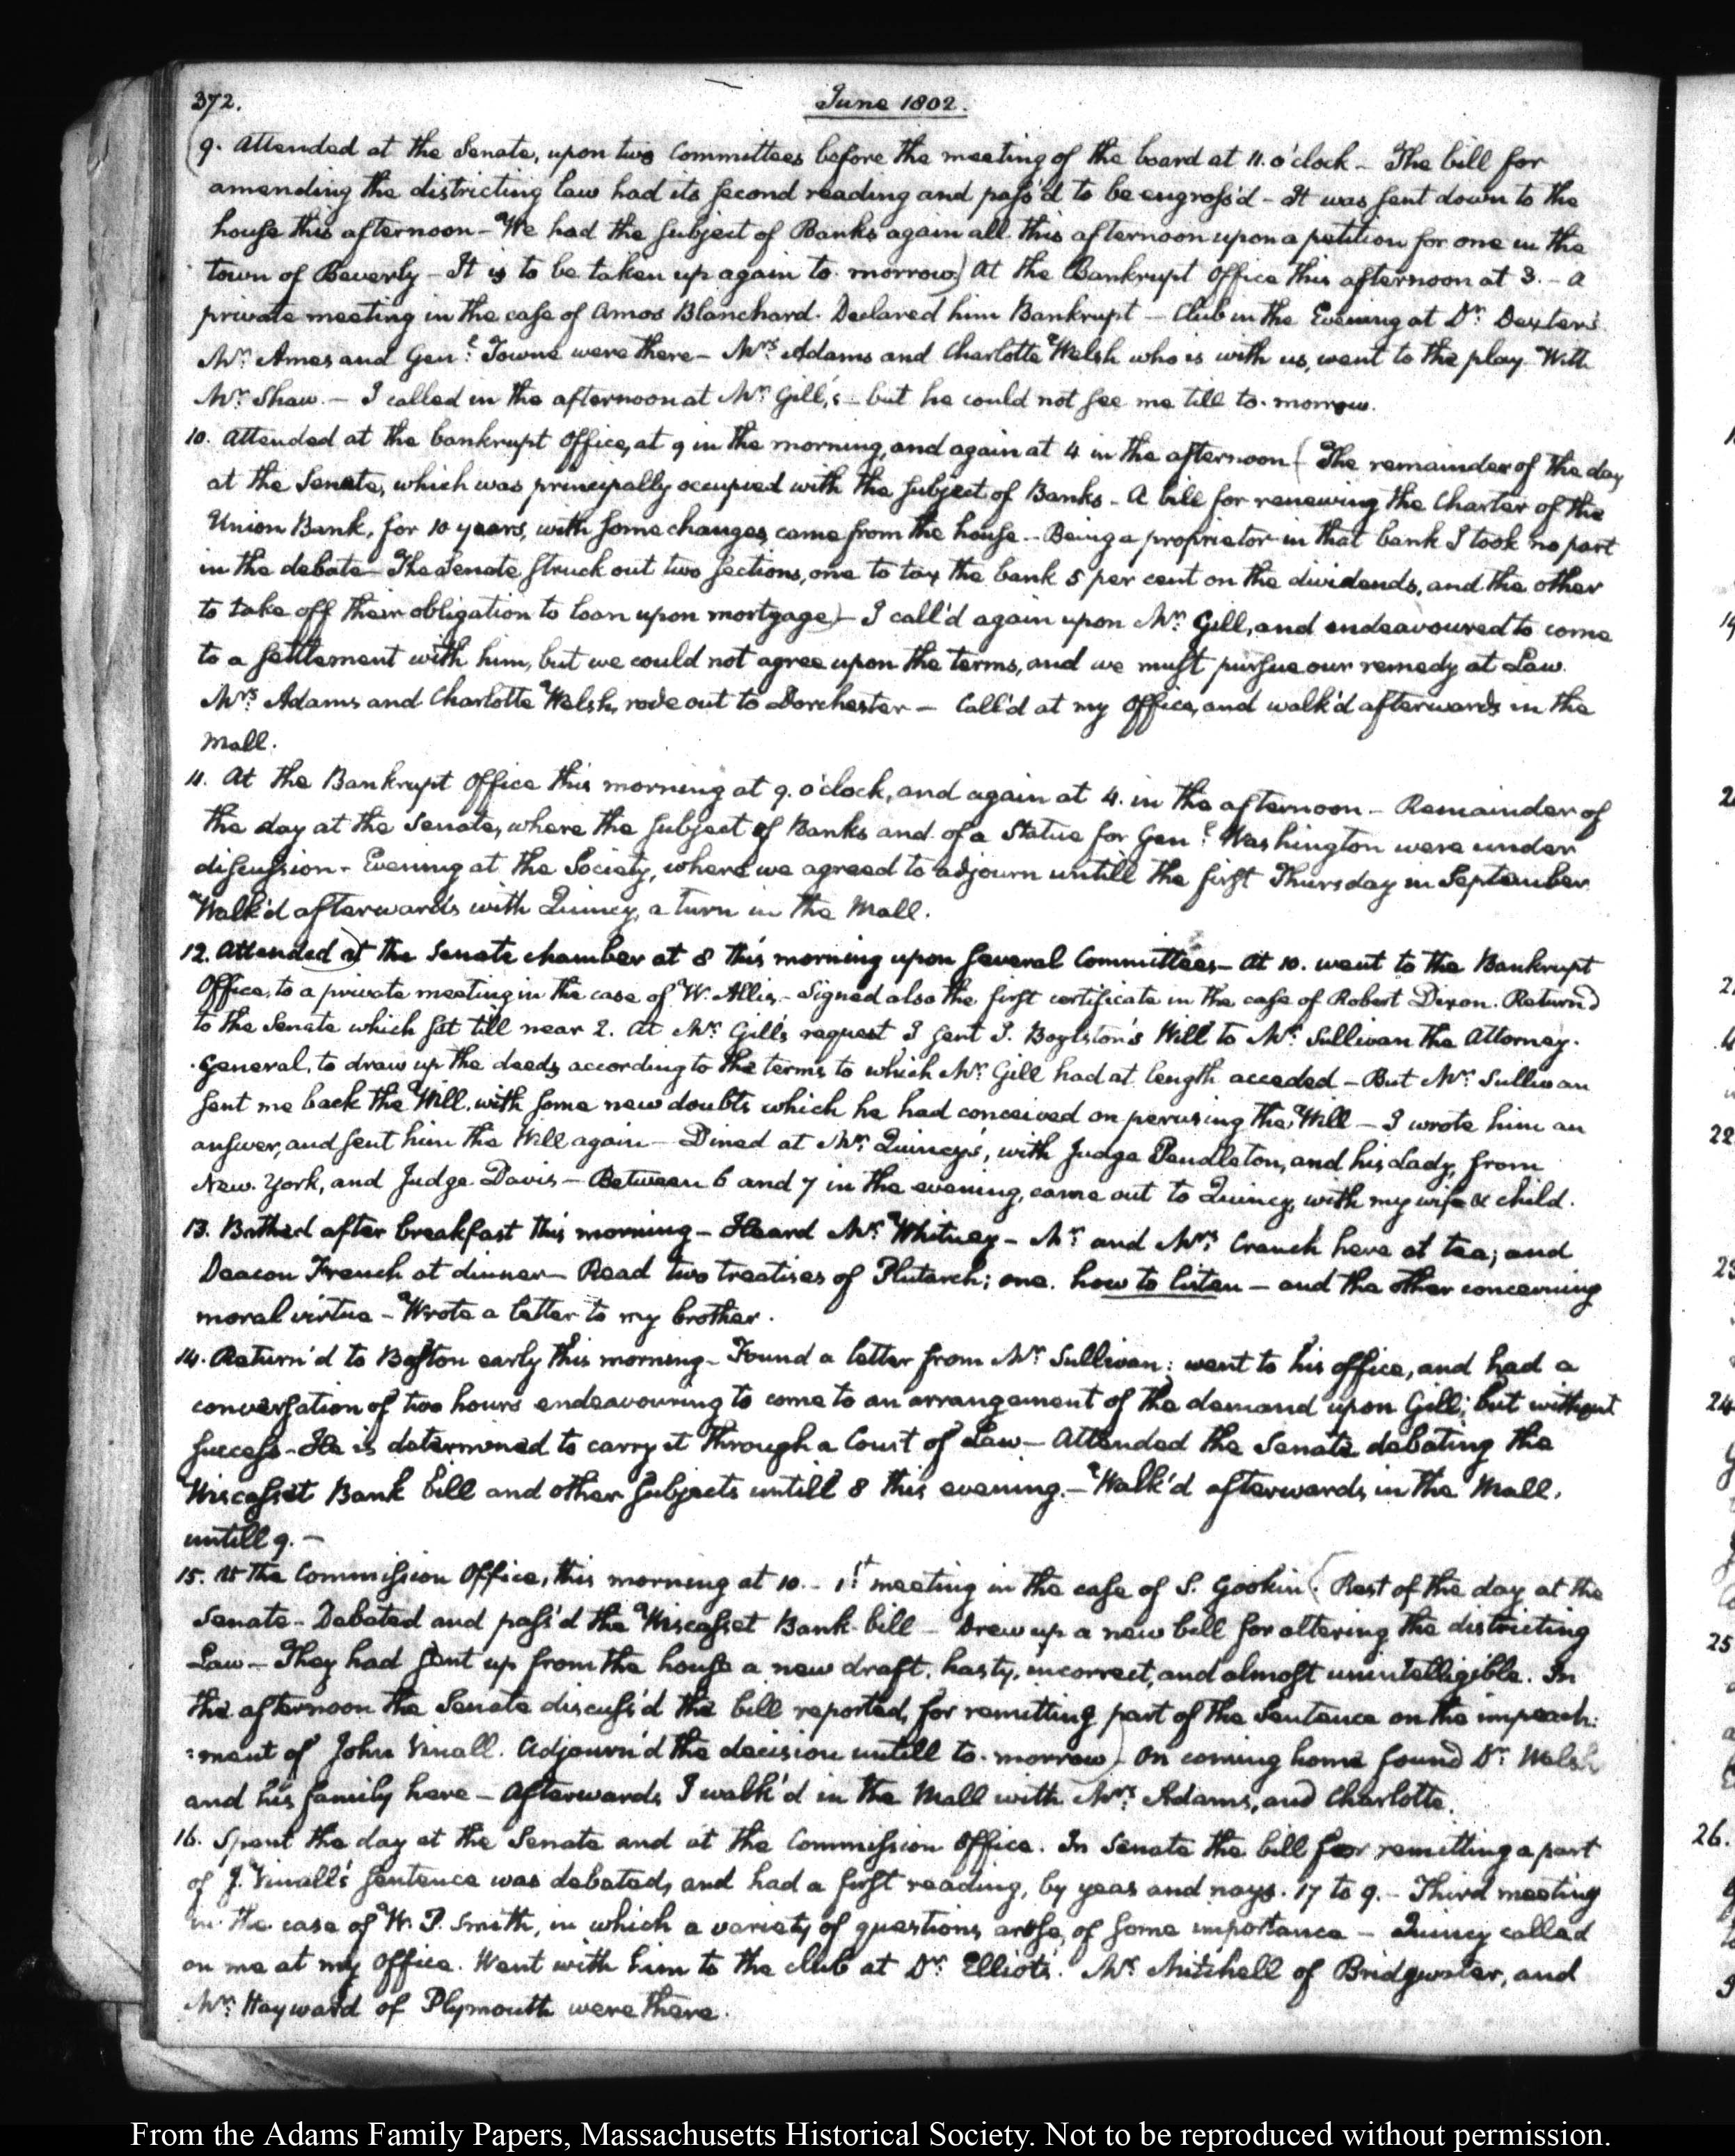 372.
June 1802.
(9. Attended at the Senate, upon two Committees before the meeting of the board at 11. o'clock – The bill for
amending the districting law had its second reading and pass'd to be engross'd – It was sent down to the
house this afternoon – We had the subject of Banks again all this afternoon upon a petition for one in the
town of Beverly – It is to be taken up again to-morrow.) At the Bankrupt Office this afternoon at 3. – a
private meeting in the case of Amos Blanchard. Declared him Bankrupt – Club in the Evening at Dr. Dexter's
Mr. Ames and Genl. Towne were there – Mrs. Adams and Charlotte Welsh who is with us, went to the play. With
Mr. Shaw. – I called in the afternoon at Mr. Gill's – but he could not see me till to-morrow.
10. Attended at the bankrupt Office, at 9 in the morning, and again at 4 in the afternoon (The remainder of the day
at the Senate, which was principally occupied with the subject of Banks – A bill for renewing the Charter of the
Union Bank, for 10 years, with some changes, came from the house – Being a proprietor in that bank I took no part
in the debate – The Senate struck out two sections, one to tax the bank 5 per cent on the dividends, and the other
to take off their obligation to loan upon mortgage) – I call'd again upon Mr. Gill, and endeavoured to come
to a settlement with him, but we could not agree upon the terms, and we must pursue our remedy at Law.
Mrs. Adams and Charlotte Welsh, rode out to Dorchester – Call'd at my Office, and walk'd afterwards in the
Mall.
11. At the Bankrupt Office this morning at 9. o'clock, and again at 4. in the afternoon – Remainder of
the day at the Senate, where the subject of Banks and of a Statue for Genl. Washington were under
discussion – Evening at the Society, where we agreed to adjourn untill the first Thursday in September
Walk'd afterwards with Quincy, a turn in the Mall.
12. Attended) at the Senate chamber at 8 this morning upon several Committees – At 10. went to the Bankrupt
Office, to a private meeting in the case of W. Allis. – Signed also the first certificate in the case of Robert Dixon. Return'd
to the Senate which sat till near 2. At Mr. Gill's request I sent T. Boylston's Will to Mr. Sullivan the Attorney-
General, to draw up the deeds according to the terms to which Mr. Gill had at length acceded – But Mr. Sullivan
sent me back the Will, with some new doubts which he had conceived on perusing the Will – I wrote him an
answer, and sent him the Will again – Dined at Mr. Quincy's, with Judge Pendleton, and his Lady, from
New-York, and Judge Davis – Between 6 and 7 in the evening, came out to Quincy, with my wife & child.
13. Bathed after breakfast this morning – Heard Mr. Whitney – Mr. and Mrs. Cranch here at tea; and
Deacon French at dinner – Read two treatises of Plutarch; one. how to listen – and the other concerning
moral virtue – Wrote a letter to my brother.
14. Return'd to Boston early this morning – Found a letter from Mr. Sullivan; went to his office, and had a
conversation of two hours endeavouring to come to an arrangement of the demand upon Gill; but without
success – He is determined to carry it through a Court of Law – Attended the Senate debating the
Wiscasset Bank bill and other subjects untill 8 this evening. – Walk'd afterwards in the Mall,
untill 9. –
15. At the Commission Office, this morning at 10. – 1st. meeting in the case of S. Gookin (Rest of the day at the
Senate – Debated and pass'd the Wiscasset Bank-bill – Drew up a new bill for altering the districting
Law – They had sent up from the house a new draft, hasty, incorrect, and almost unintelligible. In
the afternoon the Senate discuss'd the bill reported, for remitting part of the Sentence on the impeach:
:ment of John Vinall. Adjourn'd the decision untill to-morrow) On coming home found Dr. Welsh
and his family here – Afterwards I walk'd in the Mall with Mrs. Adams, and Charlotte.
16. Spent the day at the Senate and at the Commission Office. In Senate the bill for remitting a part
of J. Vinall's sentence was debated, and had a first reading, by yeas and nays. 17 to 9. – Third meeting
in the case of W. P. Smith, in which a variety of questions arose, of some importance – Quincy called
on me at my Office. Went with him to the club at Dr. Elliot's. Mr. Mitchell of Bridgwater, and
Mr. Hayward of Plymouth were there.
From the Adams Family Papers, Massachusetts Historical Society. Not to be reproduced without permission.